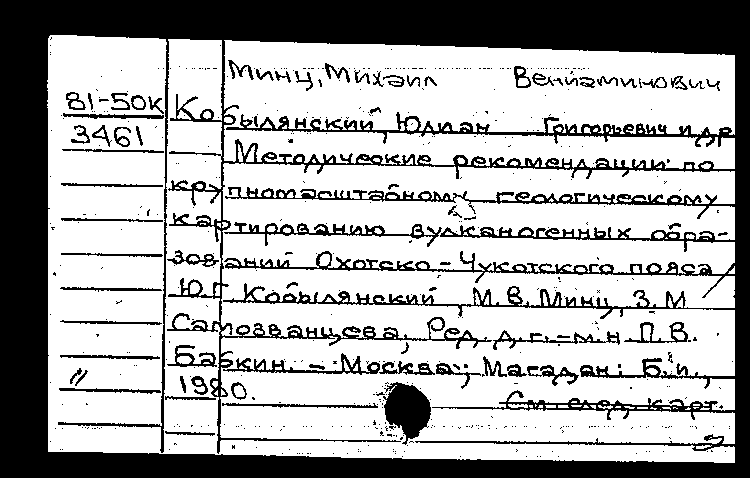 Минц, Михаил Вениаминович
81-50к Кобылянский, Юлиан Григорьевич и др
3461 Методические рекомендации по
крупномасштабному геологическому
картированию вулканогенных обра-
зований Охотско-Чукотского пояса /
Ю.Г. Кобылянский, М.В. Минц, З.М
Самозванцева; Ред. д.г.-м.н. П.В.
Бабкин. - Москва; Магадан: Б.и.,
" 1980.
См. след. карт.